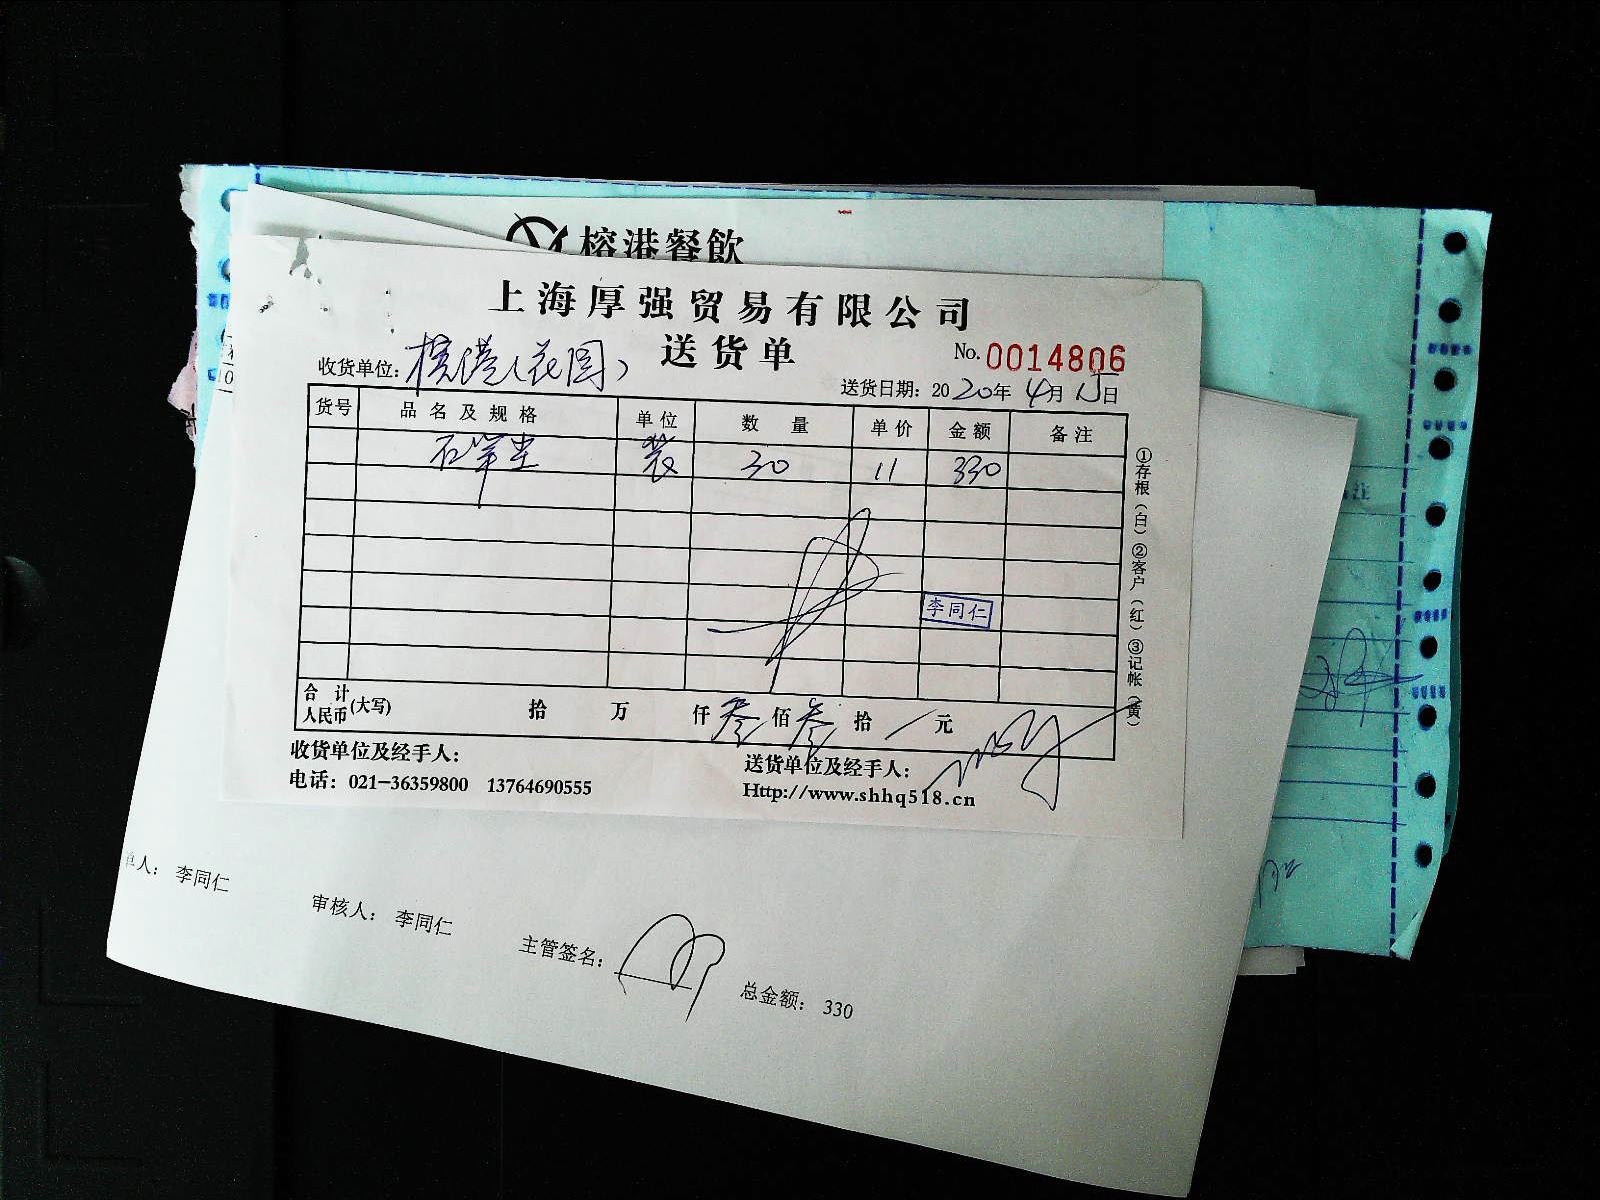 榕港餐飲
上海厚强贸易有限公司
送货单
No. 0014806
收货单位: 榕港(花园)
送货日期: 2020年4月15日
货号 品名及规格 单位 数量 单价 金额 备注
30 11 330
李同仁
合计人民币(大写) 拾 万 仟 叁 佰 叁 拾 元
①存根(白)②客户(红)③记帐(黄)
收货单位及经手人:
送货单位及经手人:
电话: 021-36359800 13764690555
Http://www.shhq518.cn
单人: 李同仁
审核人: 李同仁
主管签名:
总金额: 330